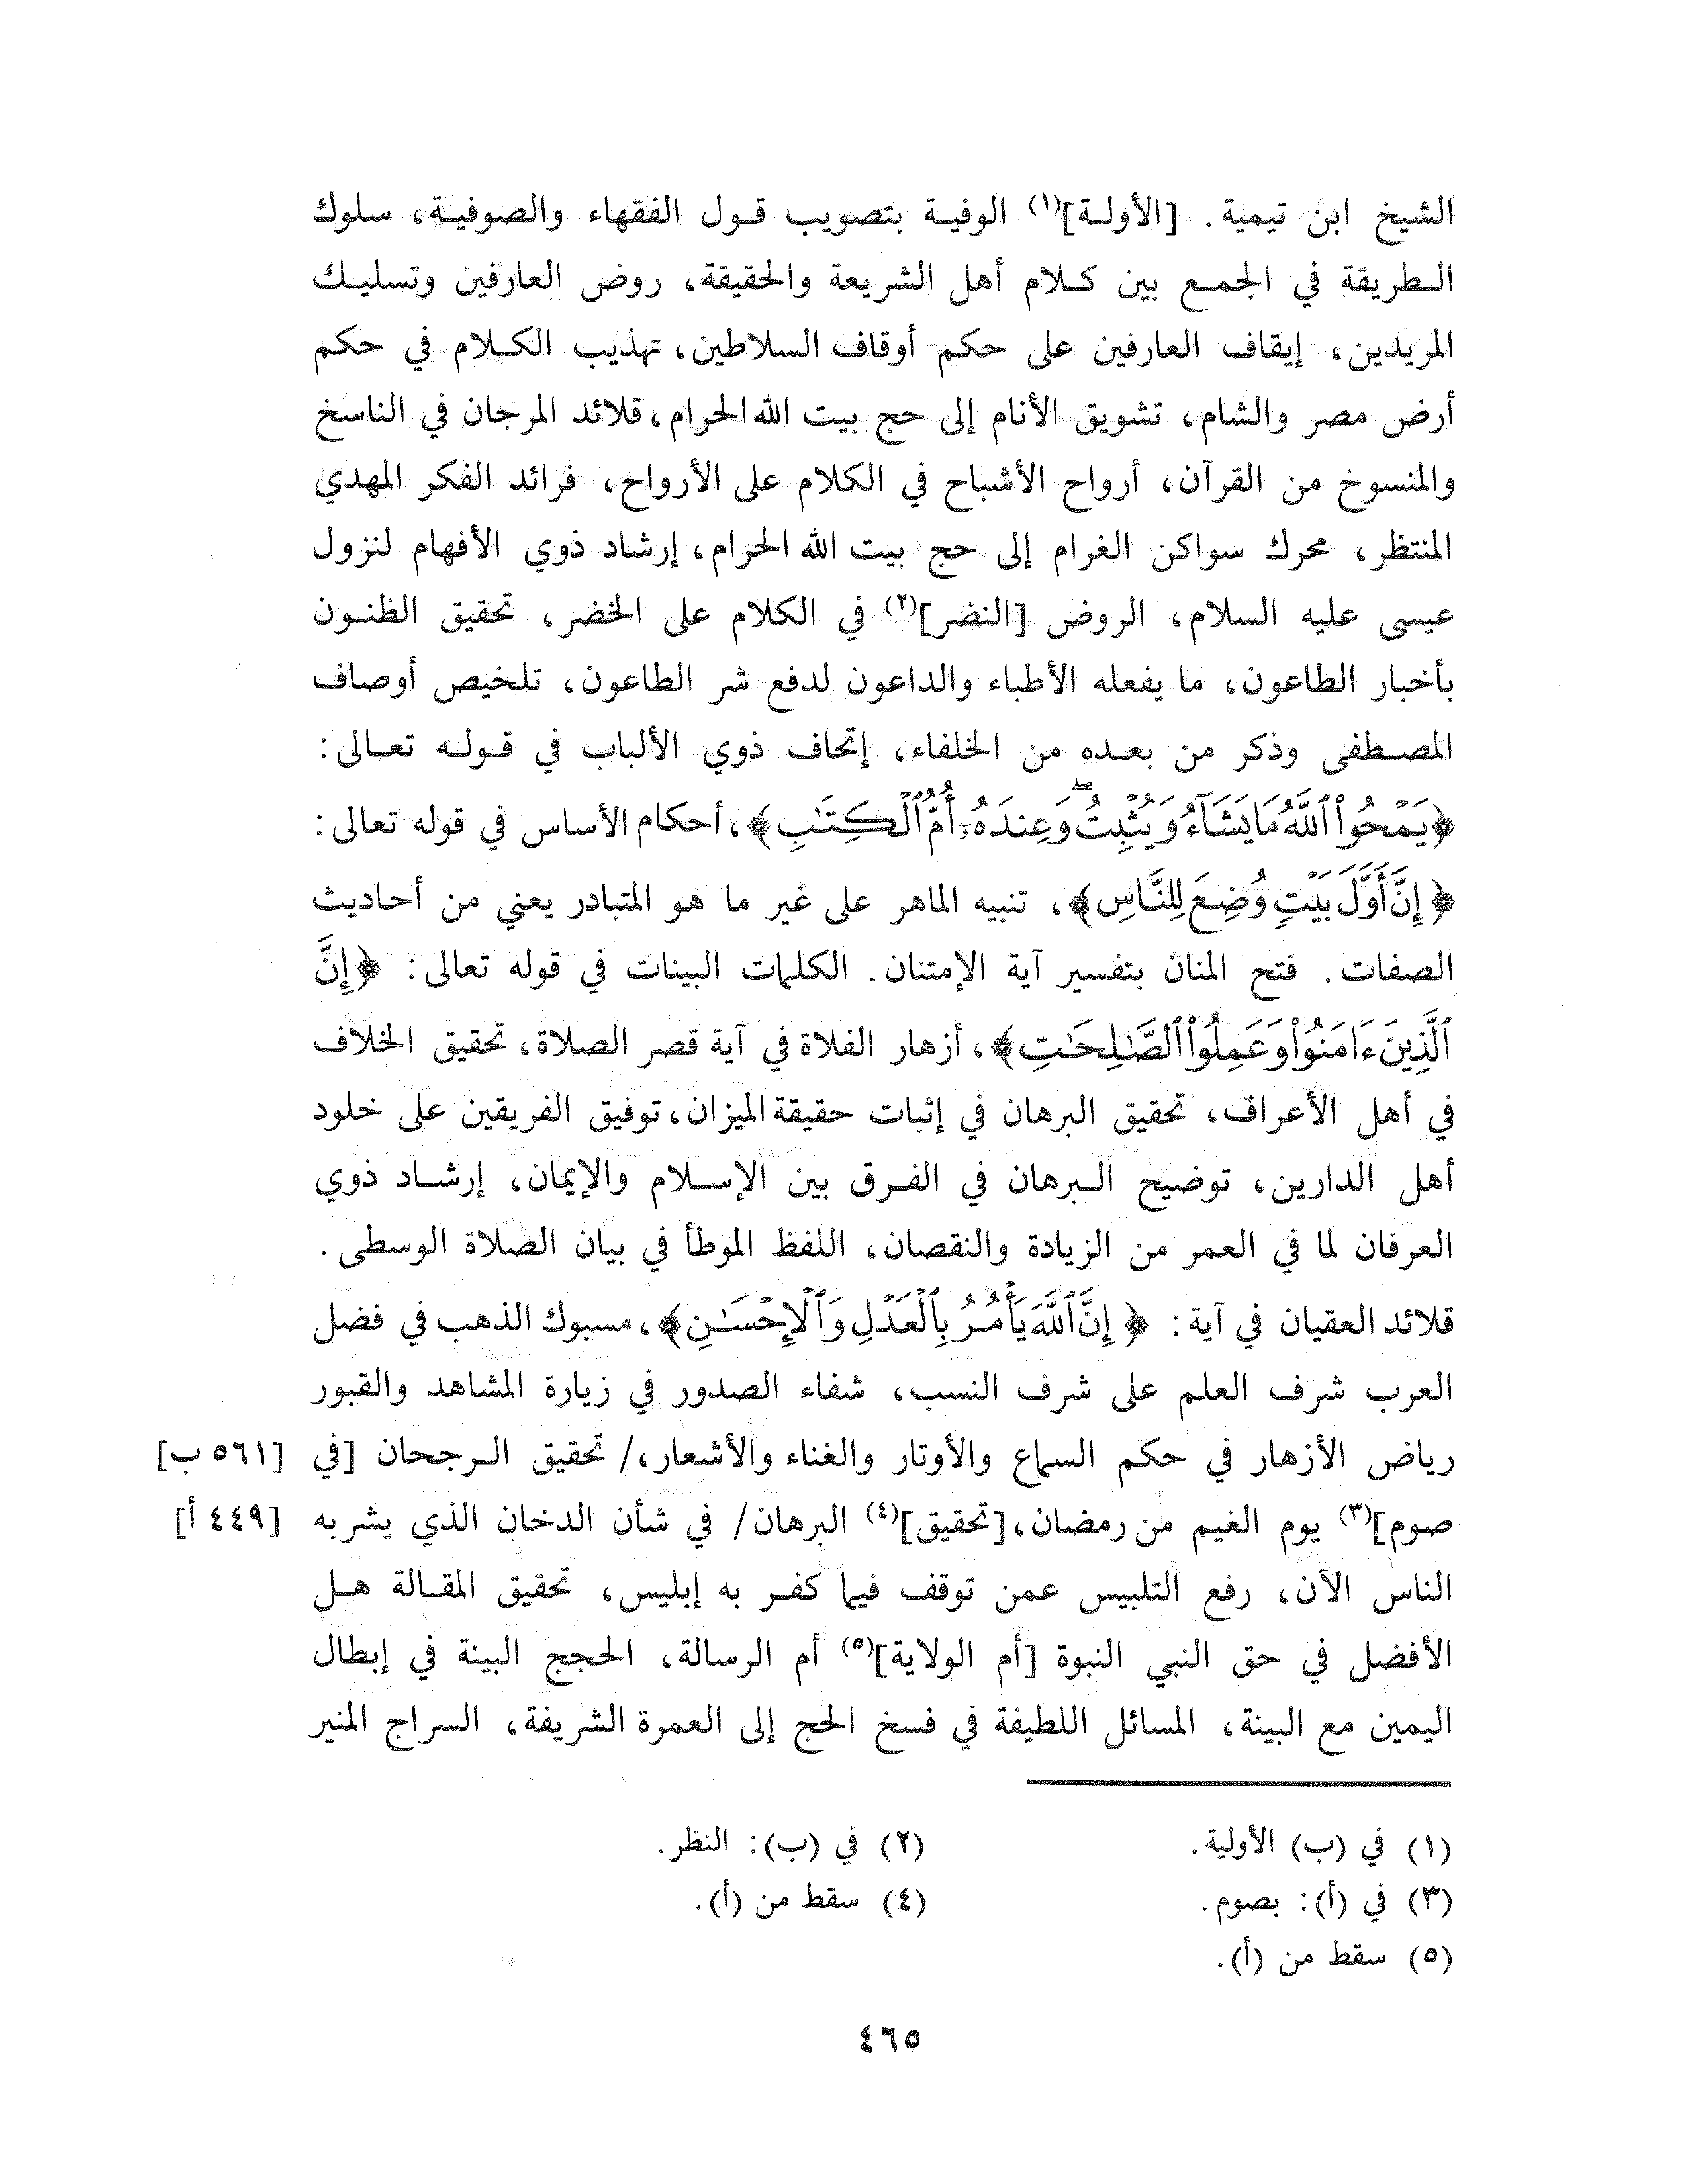 الشيخ ابن تيمية. [الأولة](١) الوفية بتصويب قول الفقهاء والصوفية، سلوك
الطريقة في الجمع بين كلام أهل الشريعة والحقيقة، روض العارفين وتسليك
المريدين، إيقاف العارفين على حكم أوقاف السلاطين، تهذيب الكلام في حكم
أرض مصر والشام، تشويق الأنام إلى حج بيت الله الحرام، قلائد المرجان في الناسخ
والمنسوخ من القرآن، أرواح الأشباح في الكلام على الأرواح، فرائد الفكر المهدي
المنتظر، محرك سواكن الغرام إلى حج بيت الله الحرام، إرشاد ذوي الأفهام لنزول
عيسى عليه السلام، الروض [النضر](٢) في الكلام على الخضر، تحقيق الظنون
بأخبار الطاعون، ما يفعله الأطباء والداعون لدفع شر الطاعون، تلخيص أوصاف
المصطفى وذكر من بعده من الخلفاء، إتحاف ذوي الألباب في قوله تعالى:
﴿يَمْحُوا۟ ٱللَّهُ مَا يَشَآءُ وَيُثْبِتُ ۖ وَعِندَهُۥٓ أُمُّ ٱلْكِتَٰبِ﴾، أحكام الأساس في قوله تعالى:
﴿إِنَّ أَوَّلَ بَيْتٍ وُضِعَ لِلنَّاسِ﴾، تنبيه الماهر على غير ما هو المتبادر يعني من أحاديث
الصفات. فتح المنان بتفسير آية الإمتنان. الكلمات البينات في قوله تعالى: ﴿إِنَّ
ٱلَّذِينَ ءَامَنُوا۟ وَعَمِلُوا۟ ٱلصَّٰلِحَٰتِ﴾، أزهار الفلاة في آية قصر الصلاة، تحقيق الخلاف
في أهل الأعراف، تحقيق البرهان في إثبات حقيقة الميزان، توفيق الفريقين على خلود
أهل الدارين، توضيح البرهان في الفرق بين الإسلام والإيمان، إرشاد ذوي
العرفان لما في العمر من الزيادة والنقصان، اللفظ الموطأ في بيان الصلاة الوسطى.
قلائد العقيان في آية: ﴿إِنَّ ٱللَّهَ يَأْمُرُ بِٱلْعَدْلِ وَٱلْإِحْسَٰنِ﴾، مسبوك الذهب في فضل
العرب شرف العلم على شرف النسب، شفاء الصدور في زيارة المشاهد والقبور
رياض الأزهار في حكم السماع والأوتار والغناء والأشعار،/ تحقيق الرجحان [في [٥٦١ ب]
صوم](٣) يوم الغيم من رمضان، [تحقيق](٤) البرهان/ في شأن الدخان الذي يشربه [٤٤٩ أ]
الناس الآن، رفع التلبيس عمن توقف فيما كفر به إبليس، تحقيق المقالة هل
الأفضل في حق النبي النبوة [أم الولاية](٥) أم الرسالة، الحجج البينة في إبطال
اليمين مع البينة، المسائل اللطيفة في فسخ الحج إلى العمرة الشريفة، السراج المنير
(١) في (ب) الأولية. (٢) في (ب): النظر.
(٣) في (أ): بصوم. (٤) سقط من (أ).
(٥) سقط من (أ).
٤٦٥